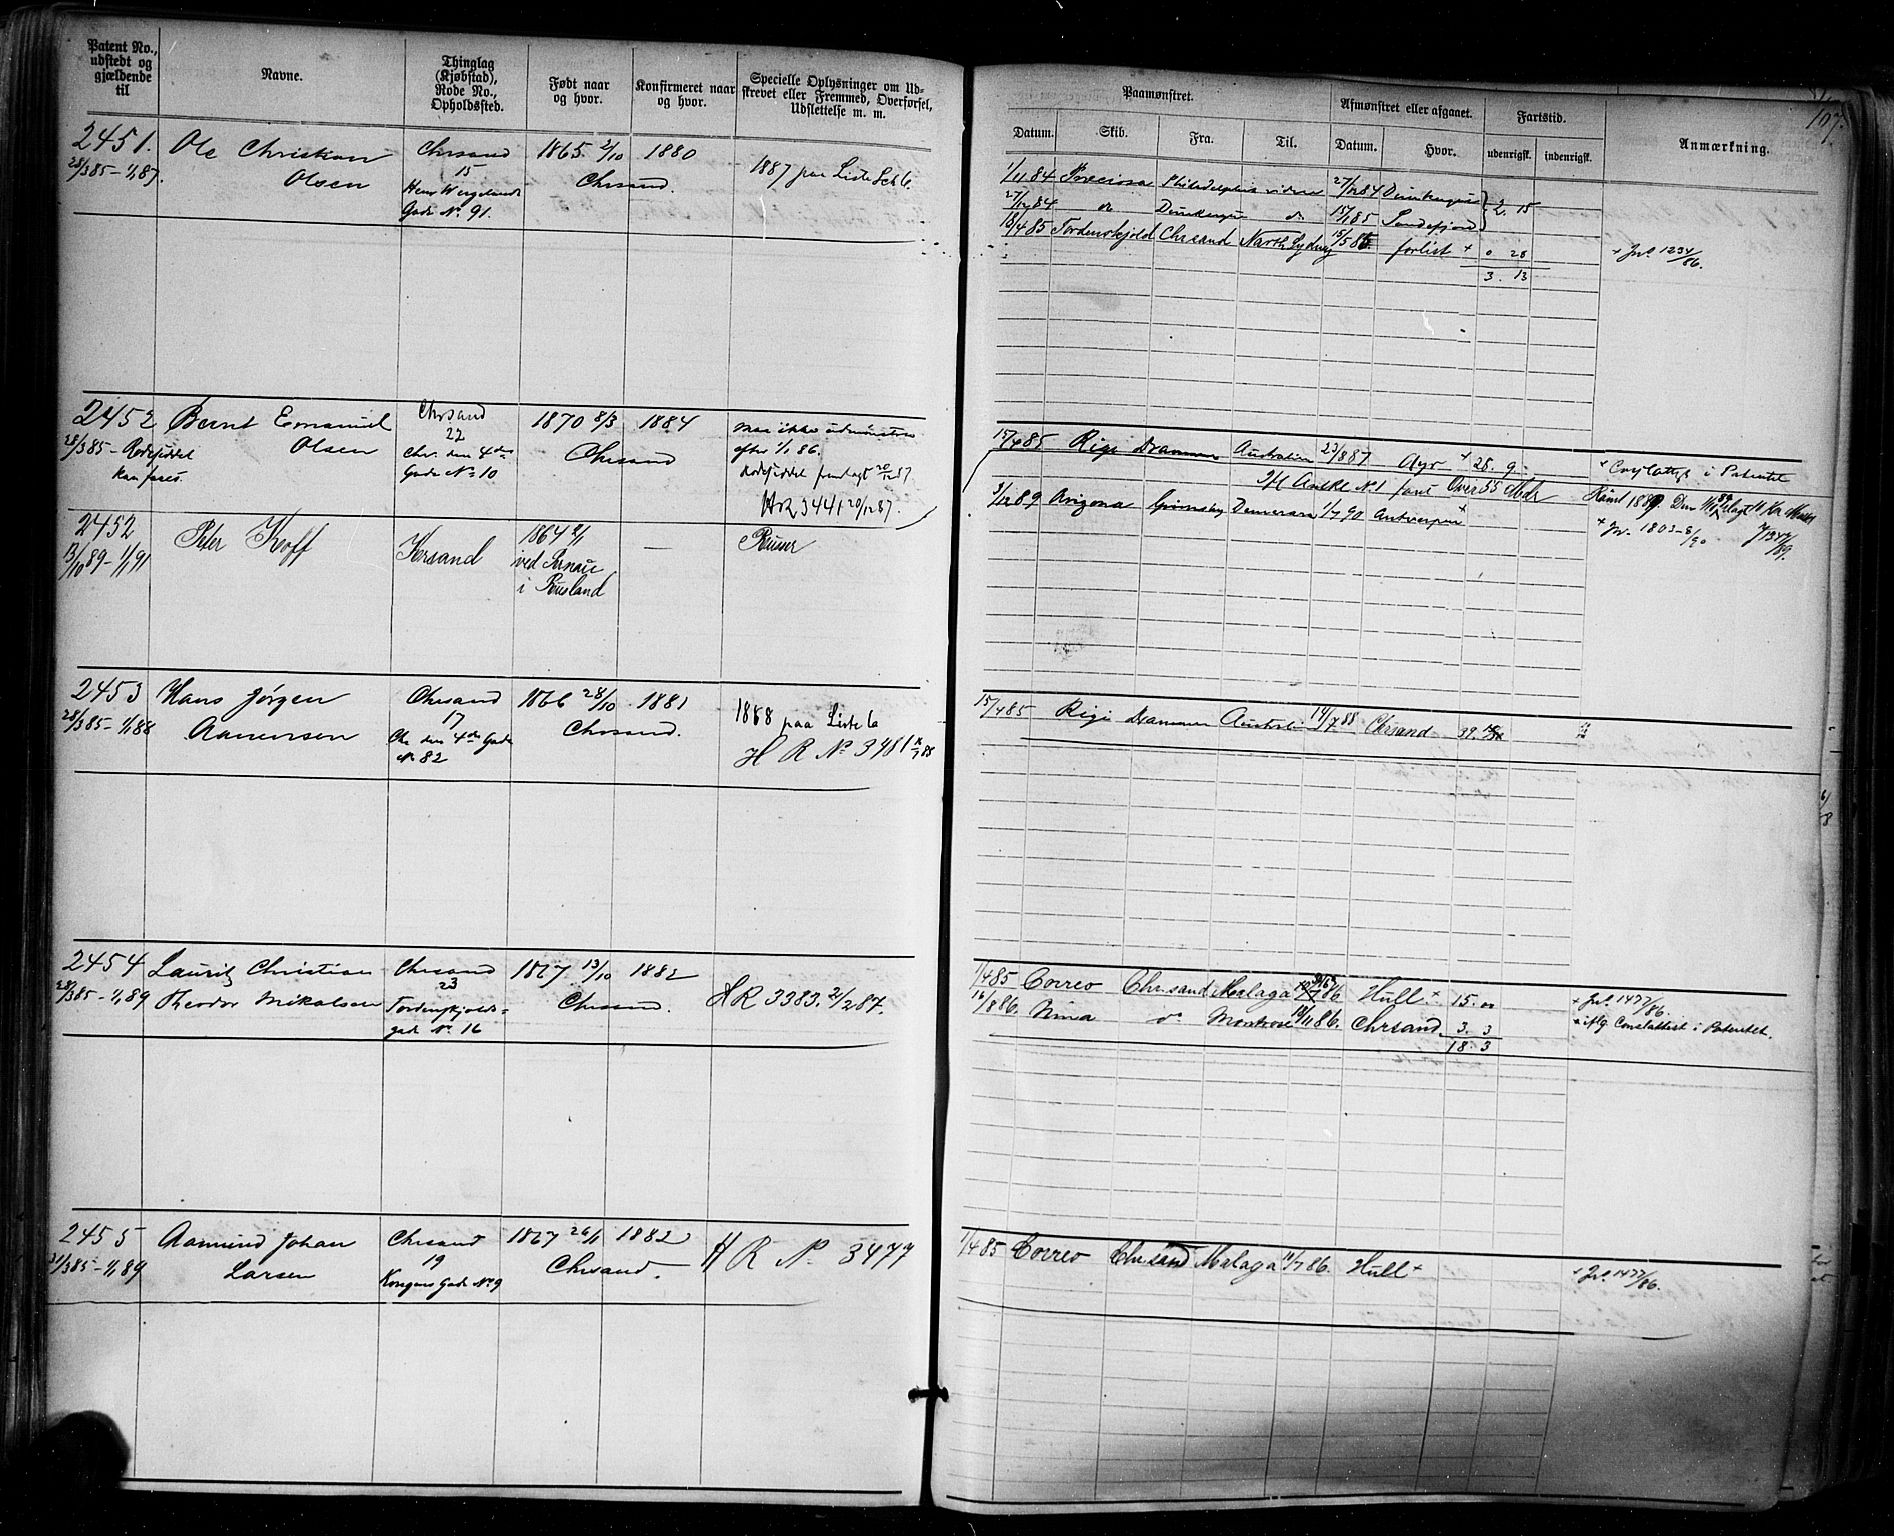 Patent No., udstedt og gjældende til
Navne.
Thinglag (Kjøbstad), Rode No., Opholdssted.
Født naar og hvor.
Konfirmeret naar og hvor.
Specielle Oplysninger om Udskrevet eller Fremmed, Overførsel, Udslettelse m. m.
2451.
28/3 85 – 1/1 87.
Ole Christian
Olsen
Chrsand
15
Henr Wergelands
Gade No. 91.
1865 2/10
1880
Chrsand.
1887 paa Liste
2452
28/3 85 –
Bernt Emanuel
Olsen
Chrsand
22
Chr. den 4des
Gade No 10
1870 8/3
1884
Chrsand
maa ikke udmønstres
efter 1/1 86.
fremlagt 20/12 87.
HR 3441 20/12 87.
2452
13/10 89 – 1/1 91
Peter Koff
Krsand
1864
ved Pernau
i Rusland
—
Russer
2453
28/3 85 – 1/1 88
Hans Jørgen
Aanensen
Chrsand
17
Chr den 4des Gade
No 82
1866 28/10
1881
Chrsand.
1888 paa Liste 6
H R No 3481
2454
28/3 85 – 1/1 89
Lauritz Christian
Theodor Nikolsen
Chrsand
23
Tordenskjolds-
gade No 16
1867 13/10
1882
Chrsand.
HR 3383. 21/2 87.
2455
31/3 85 – 1/1 89
Aamund Johan
Larsen
Chrsand
19
Kongens Gade No 9
1867 26/1
1882
Chrsand.
H R No 3477
197.
Paamønstret.
Afmønstret eller afgaaet.
Fartstid.
Anmærkning.
Datum.
Skib.
Fra.
Til.
Datum.
Hvor.
udenrigsk.
indenrigsk.
1/11 84 Preciosa Philadelphia videre 27/12 84 Dunkerque
27/12 84 do Dunkerque do 15/1 85 Sandefjord 2. 15
18/4 85 Tordenskjold Chrsand North Sydney 15/5 85 forlist + 0 28 + Jnl. 1234/86.
3. 13
15/4 85 Rigi Drammen Australien 23/8 87 Ayr + 28. 9 + i Patentet
No 1 Over 55 Mdr
3/12 89 Arizona Grimsby Demerara 1/7 90 Antwerpen +
+ Jr. 1803-8/90
15/4 85 Rigi Drammen Australien 14/7 88 Chrsand 39.
1/4 85 Correo Chrsand Malaga 86 Hull + 15. + Jnl. 1477/86.
16/8 86. Nina do Montrose 86. Chrsand. 3. 3 i Patentet.
18. 3
1/4 85 Correo Chrsand Malaga 11/7 86. Hull + + Jnl. 1477/86.